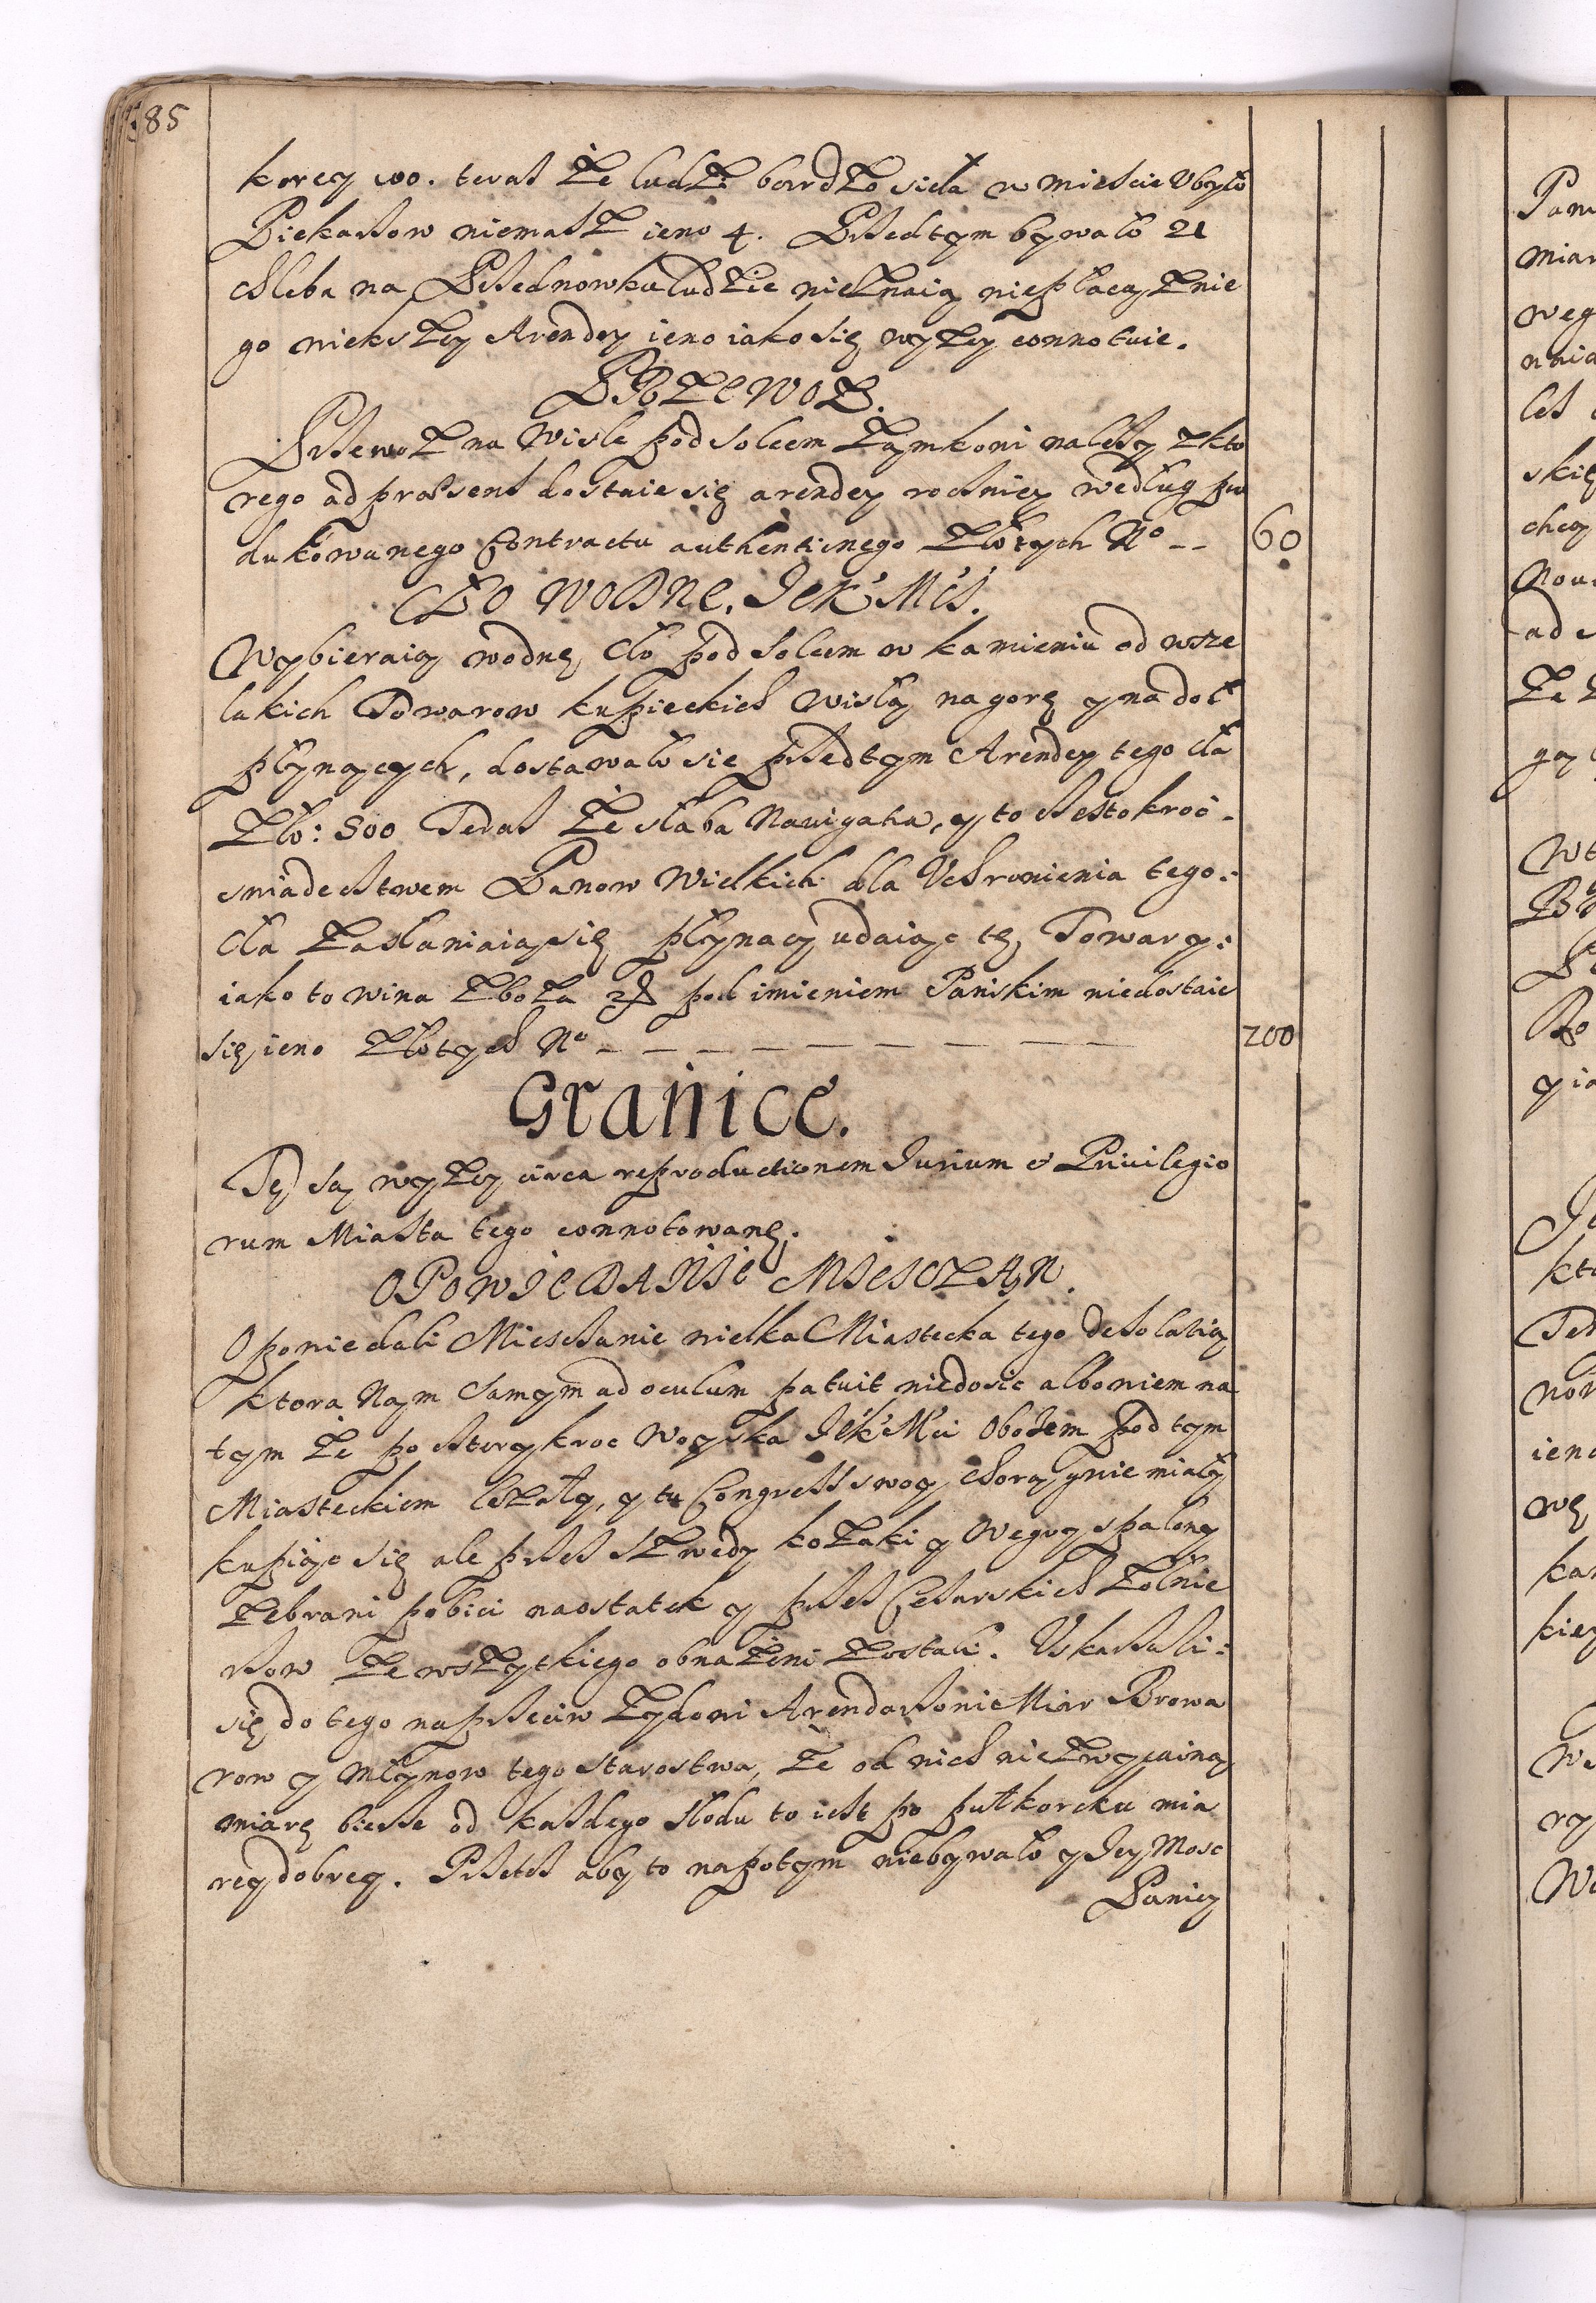 385
korcy 100. teras że ludzi bardzo siła w mieście ubyło
Piekarzow niemasz ieno 4. Przedtym bywało 21
chleba na Przednowku ludzie nieznaią niepłacą z nie
go niekszey Arendy ieno iako się wyzey connotuie.
PRZEWOZ.
Przewoz na Wisle pod Solcem Zamkowi należy z kto
rego ad præsens dostaie się arendey roczniey według pro
dukowanego Contractu authenticznego Złotych No -- 60
CŁO WODNE. JEK Mci.
Wybieraią wodnę cło pod Solcem w kamieniu od wsze
lakich Towarow kupieckich Wisłą na gorę y na doł
płynących, dostawało sie przedtym Arendy tego cła
Zło: 500 Teras że słaba Nauigatia, y to czestokroc
swiadectwem Panow Wielkich dla Uchronienia tego:
cła zasłaniaią się płynący udaiąc tę Towary:
iako to wina zboża &c pod imieniem Panskim niedostaie
się ieno Złotych No — — — — — — — 200
Granice.
Tę są wyzey circa reproductionem Iurium et Priuilegio
rum Miasta tego connotowanę.
OPOWIEDANIE MIESCZAN.
Opowiedali Miesczanie wielką Miastecka tego desolatią
ktora Nąm samym ad oculum patuit niedosic albowiem na
tym że po czterykroc Woyska JEK Mci Obozem pod tym
Miasteckiem leżały, y tu Congress swoy chorągwie miały
kupiąc się ale przes Szwedy kozaki y Węgry spaleny
zebrani pobici naostatek y przes Cesarskich Zołnie
rzow ze wszytkiego obnażeni zostali. Uskarzali:
się do tego naprzeciw Zydowi Arendarzowi Miar Browa
row y młynow tego Starostwa, że od nich niezwyczainą
miarę bierze od każdego słodu to iest po pułkorcku mia
rey dobrey. Przeto aby to napotym niebywało y Jey Mosc
Paniey